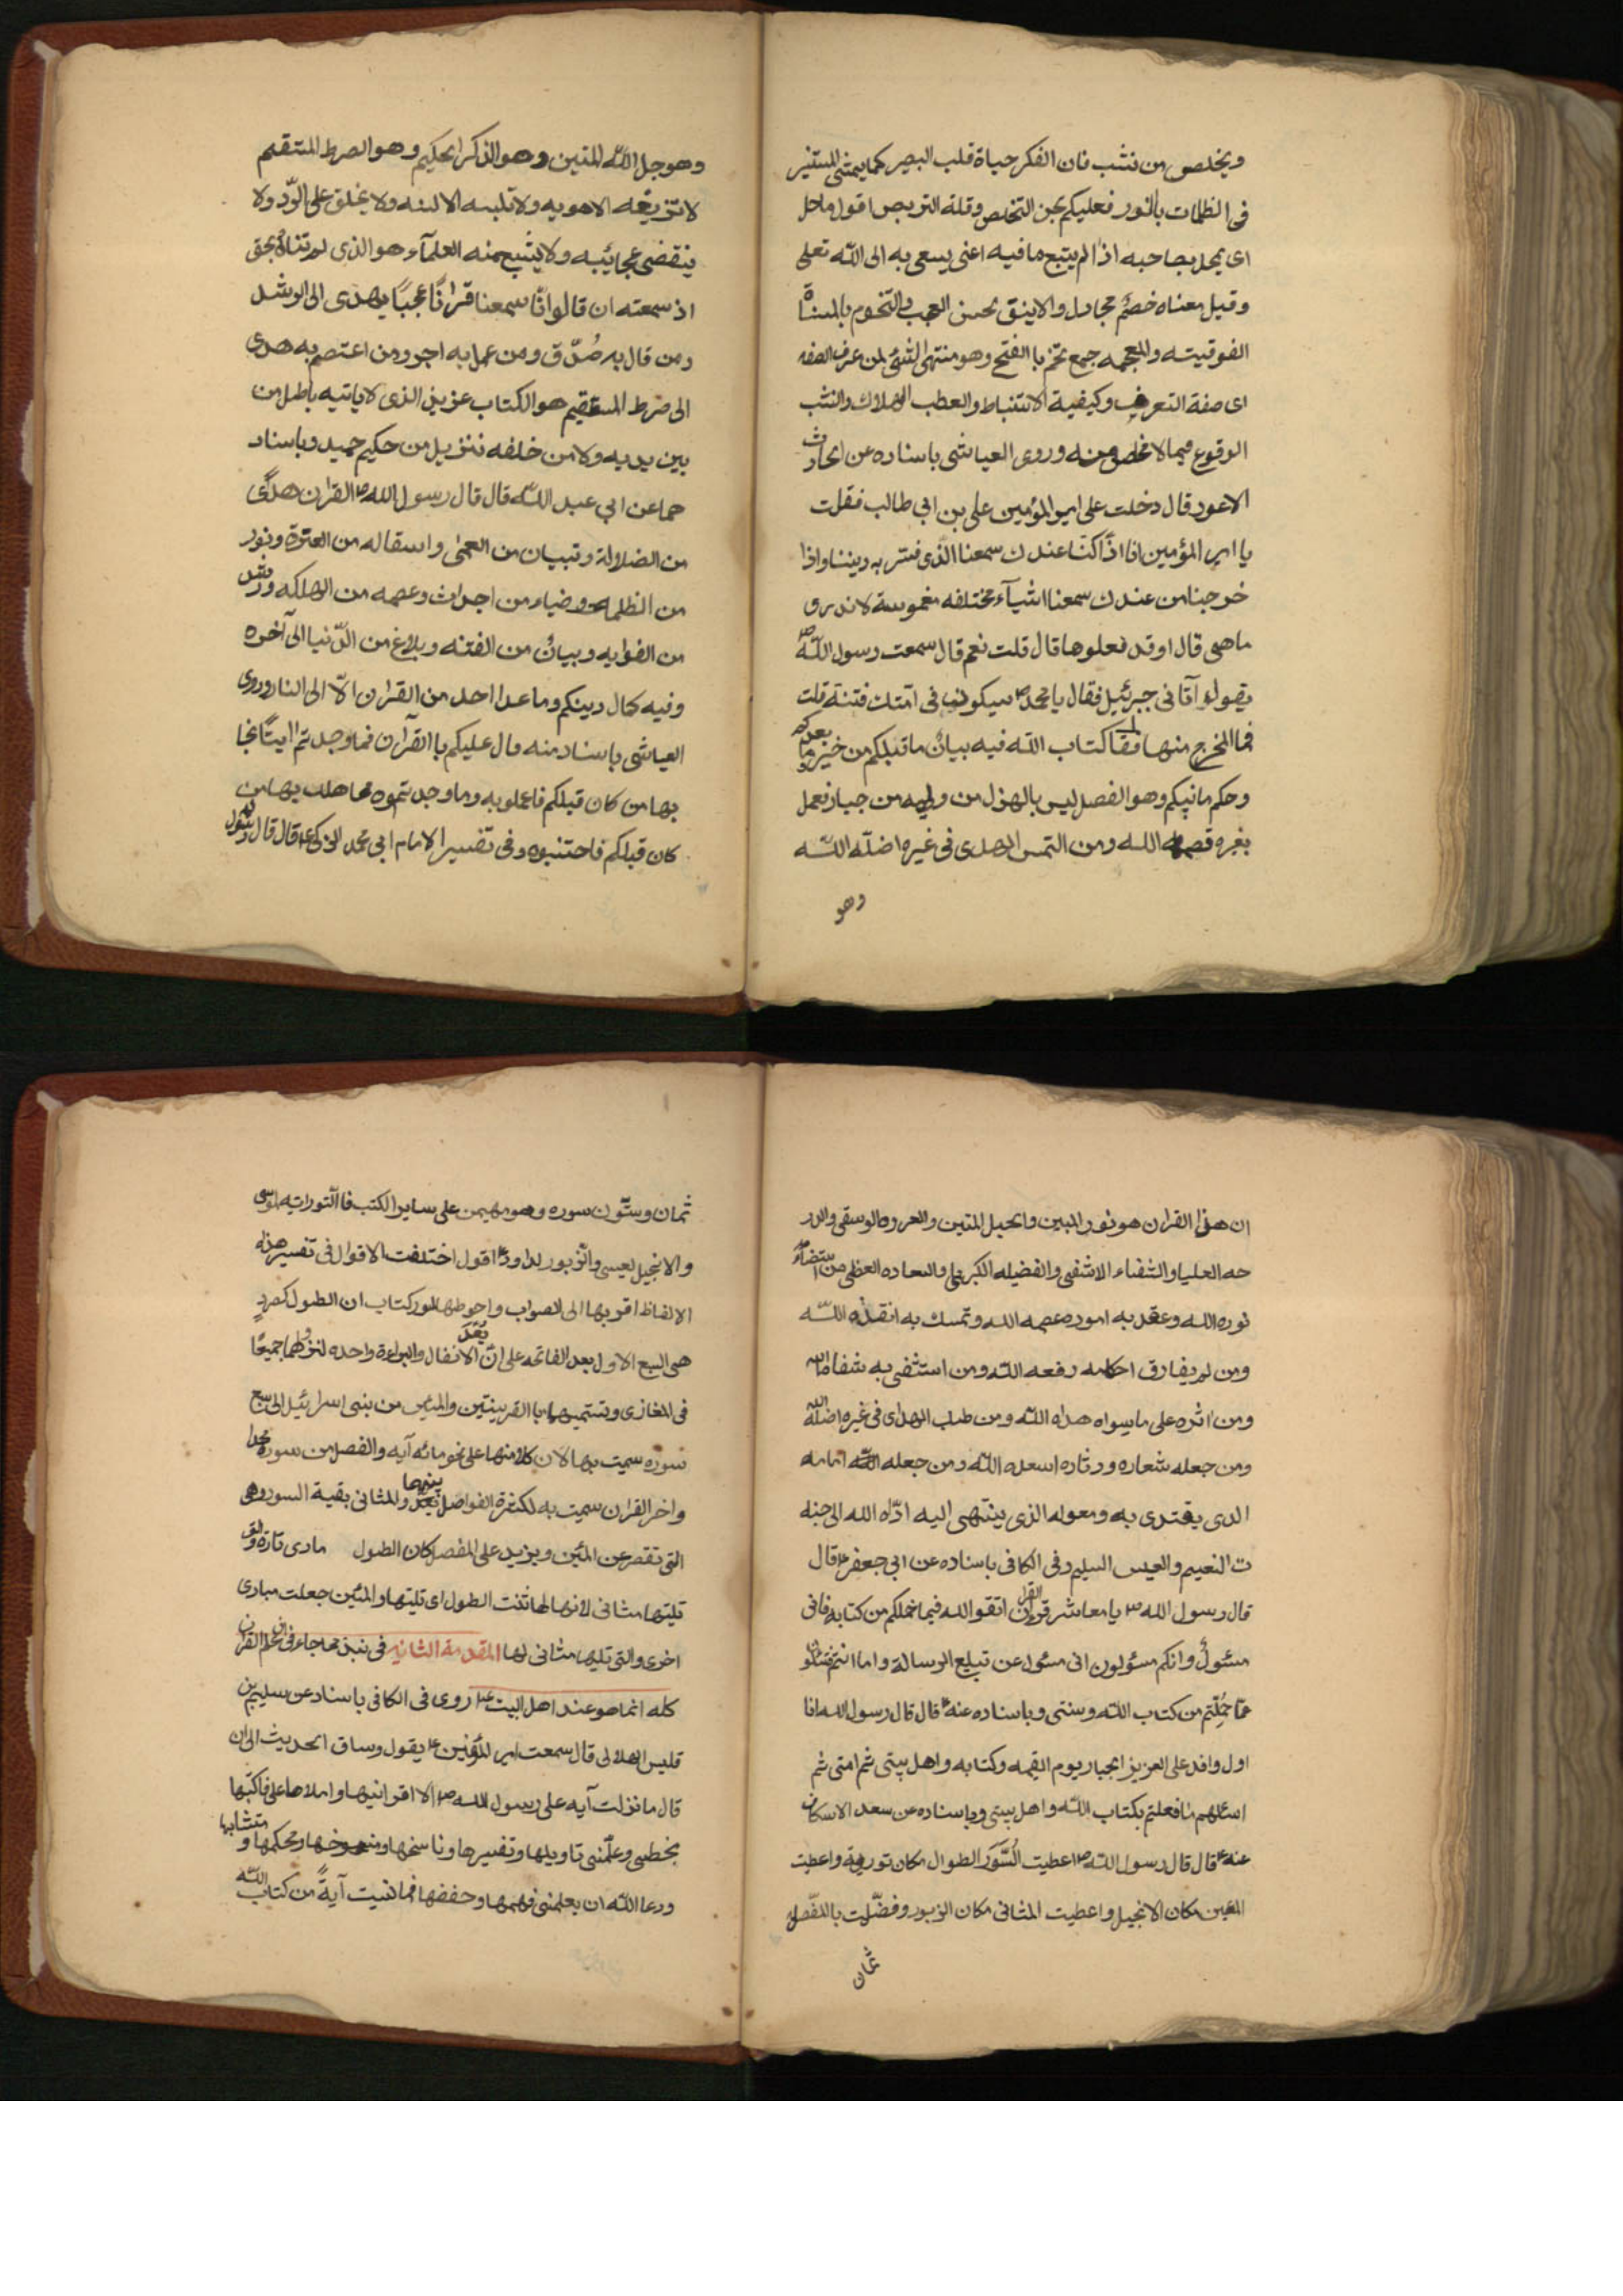 ويخلص من نشب فان الفكر حياة قلب البصير كما يمشى المستنير
فى الظلمات بالنور فعليكم بحسن التخلص وقلة التربص اقول ماحل
اى يمحل بصاحبه اذا لم يتبع ما فيه اعنى يسعى به الى الله تعلى
وقيل معناه خصم مجادل والانيق لحسن العجب والتخوم بالمثناة
الفوقيته والمعجمه جمع تخم با الفتح وهو منتهى الشئ لمن عرف الصفه
اى صفة التعرف وكيفية الاستنباط والعطب الهلاك والنشب
الوقوع فيما لا مخلص منه وروى العياشى باسناده عن الحارث
الاعور قال دخلت على امير المؤمنين على بن ابى طالب فقلت
يا امير المؤمنين انا اذا كنا عندك سمعنا الذى نستر به ديننا واذا
خرجنا من عندك سمعنا اشيآء مختلفه مغموسة لا ندرى
ما هى قال اوقد فعلوها قال قلت نعم قال سمعت رسول الله ص
يقول اتانى جبرئيل فقال يا محمد ص سيكون فى امتك فتنة قلت
فما المخرج منها فقال كتاب الله فيه بيان ما قبلكم من خبر وما بعدكم
وحكم ما بينكم وهو الفصل ليس بالهزل من وليه من جبار فعمل
بغيره قصمه الله ومن التمس الهدى فى غيره اضله الله
وهو
وهو حبل الله المتين وهو الذكر الحكيم وهو الصرط المستقيم
لا تزيغه الاهويه ولا تلبسه الالسنه ولا يخلق على الرد ولا
ينقضى عجائبه ولا يشبع منه العلمآء هو الذى لم تناه الجن
اذ سمعته ان قالوا انا سمعنا قرانا عجبا يهدى الى الرشد
ومن قال به صدق ومن عمل به اجر ومن اعتصم به هدى
الى صرط المستقيم هو الكتاب عزيز الذى لا ياتيه باطل من
بين يديه ولا من خلفه تنزيل من حكيم حميد وباسناد
هما عن ابى عبد الله قال قال رسول الله ص القران هدى
من الضلالة وتبيان من العمى واستقاله من العثرة ونور
من الظلمة وضياء من اجداث وعصمه من الهلكه ورشد
من الغوايه وبيان من الفتنه وبلاغ من الدنيا الى آخره
وفيه كمال دينكم وما عدا احد من القران الا الى النار وروى
العياشى باسناد منه قال عليكم با القرآن فما وجدتم ايتا نجا
بها من كان قبلكم فاعملو به وما وجدتموه مما هلك بها من
كان قبلكم فاجتنبوه وفى تفسير الامام ابى محمد الزكى ع قال قال رسول
ان هذا القران هو نور المبين والحبل المتين والعروه الوسقى والدر
جه العليا والشفاء الاشفى والفضيله الكبرى والسعاده العظمى من استضاء
نوره الله وعقد به اموره عصمه الله وتمسك به انقذه الله
ومن لم يفارق احكامه رفعه الله ومن استشفى به شفاه الله
ومن اثره على ما سواه هداه الله ومن طلب الهدى فى غيره اضله الله
ومن جعله شعاره ودثاره اسعده الله ومن جعله امامه
الذى يقتدى به ومعوله الذى ينتهى اليه ادّاه الله الى جنه
ت النعيم والعيس السليم وفى الكافى باسناده عن ابى جعفر ع قال
قال رسول الله ص يا معاشر قران القران اتقوا الله فيما حملكم من كتابه فانى
مسئول وانكم مسئولون انى مسئول عن تبليغ الرسالة واما انتم فتسئلون
عما حملتم من كتاب الله وسنتى وباسناده عنه ع قال قال رسول الله انا
اول وافد على العزيز الجبار يوم القيمه وكتابه واهل بيتى ثم امتى ثم
اسئلهم ما فعلتم بكتاب الله واهل بيتى وباسناده عن سعد الاسكاف
عنه ع قال قال رسول الله ص اعطيت السور الطوال مكان تورية واعطيت
المئين مكان الانجيل واعطيت المثانى مكان الزبور وفضّلت بالمفصل
ثمان
ثمان وستون سوره وهو مهيمن على ساير الكتب فا التوراته لموسى
والانجيل لعيسى والزبور لداود ع اقول اختلفت الاقوال فى تفسير هذه
الالفاظ اقربها الى الصواب واحوطها لسور كتاب ان الطول كصرد
هى السبع الاول بعد الفاتحه على ان يعد الانفال والبراءة واحده لنزولهما جميعا
فى المغازى وتسميتهما با القرينتين والمئين من بنى اسرائيل الى سبع
سوره سميت بها لان كلا منها على نحو مائه آيه والفصل من سوره محمد
واخر القران سميت به لكثرة الفواصل بينهما والمثانى بقية السور وهى
التى تقصر عن المئين ويزيد على المفصل كان الطول مادى تارة والتى
تليتها مثانى لانها لها ثنت الطول اى تليتها والمئين جعلت مبادى
اخرى والتى تليها مثانى لها المقدمة الثانيه فى نبذ مما جاء فى ان علم القران
كله انما هو عند اهل البيت ع روى فى الكافى باسناد عن سليم بن
قليس الهلالى قال سمعت امير المؤمنين ع يقول وساق الحديث الى ان
قال ما نزلت آيه على رسول الله ص الا اقرانيها واملاها على فاكتبها
بخطى وعلمنى تاويلها وتفسيرها وناسخها ومنسوخها ومحكمها و متشابها
ودعا الله ان يعلمنى فهمها وحفضها فما نسيت آية من كتاب الله